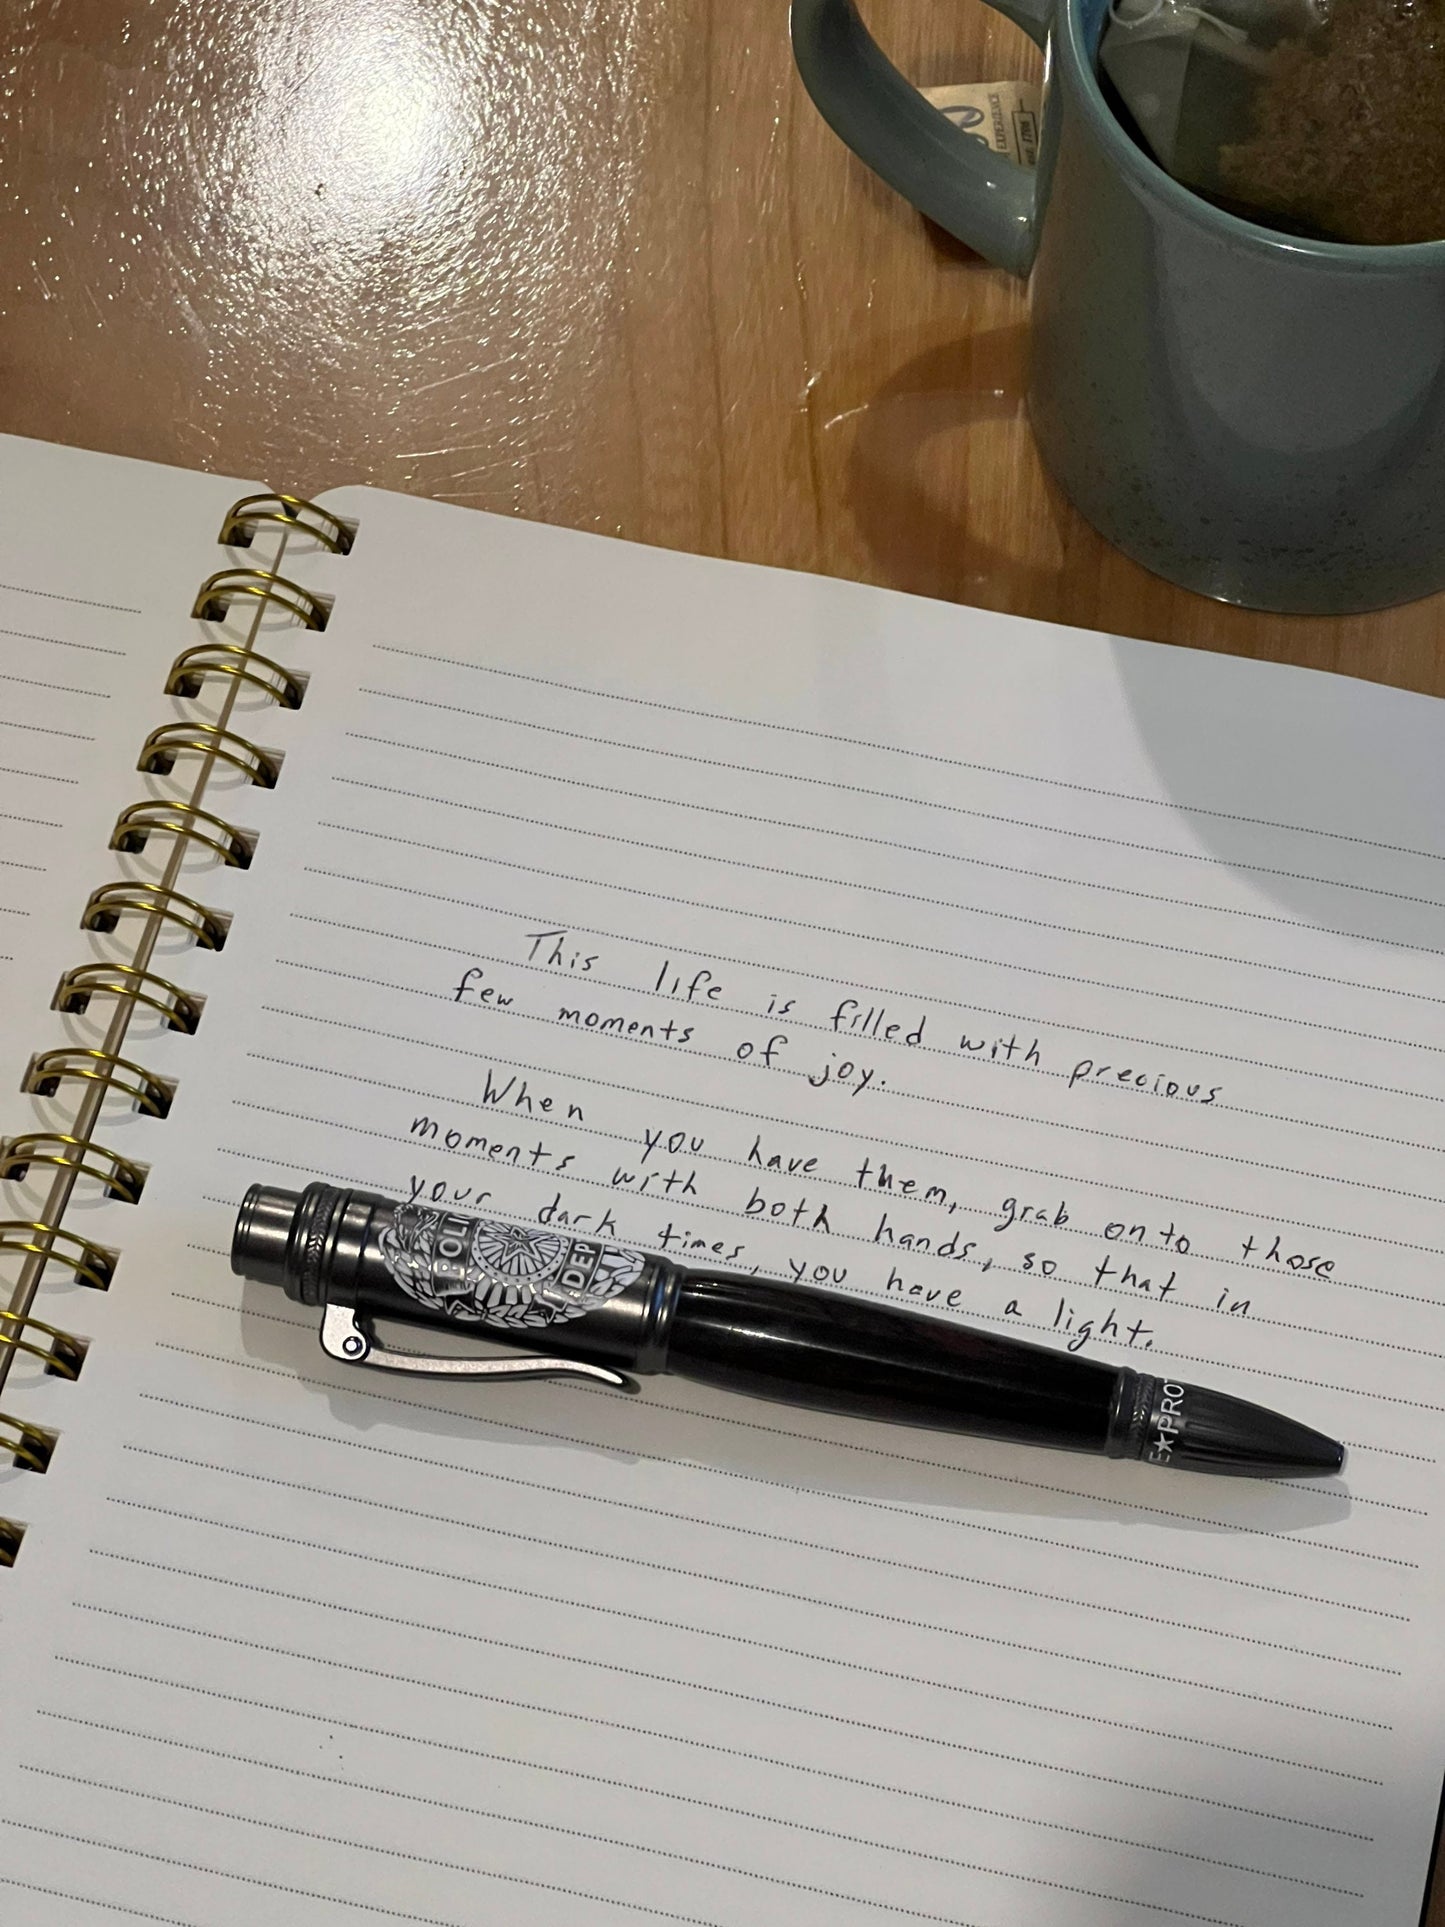 EXPERIENCE
1706
This life is filled with precious
few moments of joy.
When you have them, grab onto those
moments with both hands, so that in
your dark times, you have a light.
POLI
DEP
E★PRO